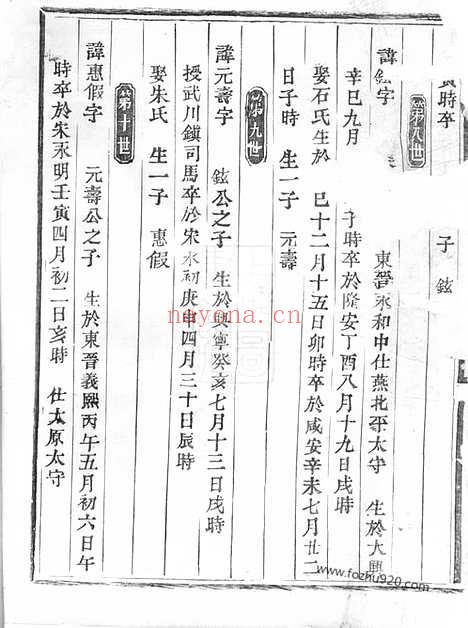 時卒
子鉉
第八世
諱鉉字 東晉永和中仕燕北平太守 生於大興
辛巳九月 子時卒於隆安丁酉八月十九日戌時
娶石氏生於 巳十二月十五日卯時卒於咸安辛未七月廿二
日子時 生一子 元壽
第九世
諱元壽字 鉉公之子 生於興寧癸亥七月十三日戌時
授武川鎮司馬卒於宋永初庚申四月三十日辰時
娶朱氏 生一子 惠假
第十世
諱惠假字 元壽公之子 生於東晉義熙丙午五月初六日午
時卒於宋永明壬寅四月初二日亥時 仕太原太守
nayona.cn
www.fozhu920.com